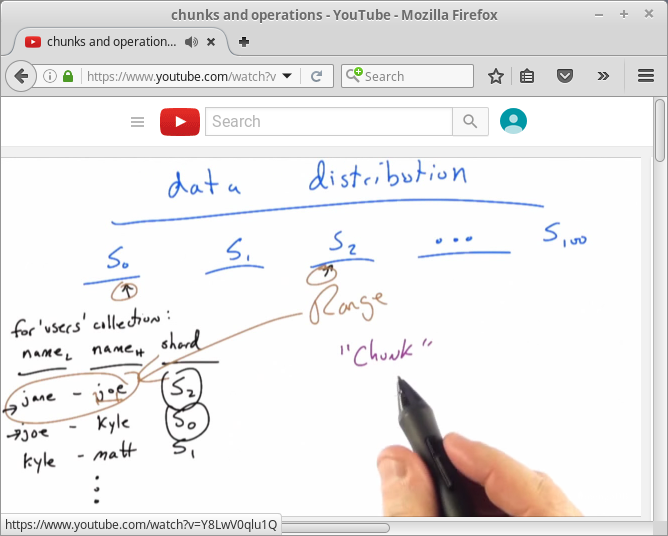 chunks and operations - YouTube - Mozilla Firefox
chunks and operation...
https://www.youtube.com/watch?v
Search
Search
data distribution
S0 S1 S2 ... S100
Range
for 'users' collection:
nameL nameH shard
"Chunk"
jane - joe S2
joe - Kyle S0
kyle - matt S1
https://www.youtube.com/watch?v=Y8LwV0qlu1Q